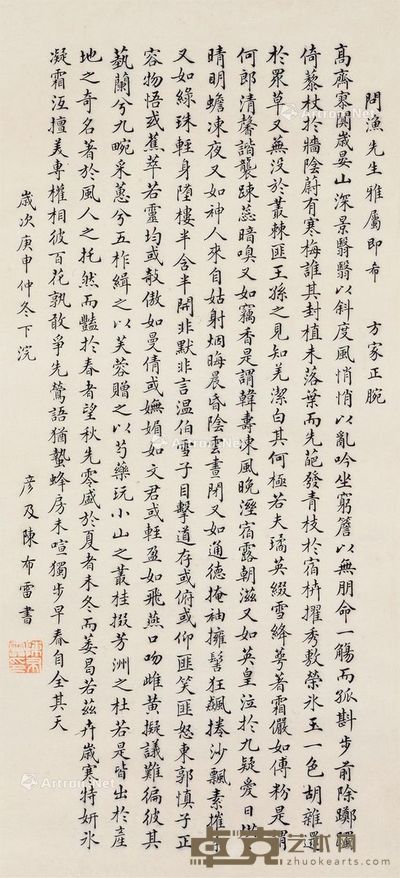 問漁先生雅屬即布 方家正腕
高齊寒閴歲晏山深景翳翳以斜度風悄悄以亂吟坐窮簷以無朋命一觴而孤斟步前除躑躅
倚藜杖於牆陰蔚有寒梅誰其封植未落葉而先葩發青枝於宿枿擢秀敷榮氷玉一色胡雜遝
於眾草又蕪沒於叢棘匪王孫之見知羌潔白其何極若夫瓊英綴雪絳萼著霜儼如傅粉是謂
何郎清馨諧襲踈蕊暗嗅又如竊香是謂韓壽凍風晚溼宿露朝滋又如英皇泣於九疑愛日
晴明蟾凍夜又如神人來自姑射烟晦晨昏陰雲晝閉又如通德掩袖擁髻狂飆捲沙飄素摧
又如綠珠輕身墮樓半含半開非默非言溫伯雪子目擊道存或俯或仰匪笑匪怒東郭慎子正
容物悟或蕉萃若靈均或敧傲如曼倩或嫵媚如文君或輕盈如飛燕口吻雌黃擬議難徧彼其
蓺蘭兮九畹采蕙兮五柞緝之以芙蓉贈之以芍藥玩小山之叢桂掇芳洲之杜若是皆出於產
地之奇名著於風人之托然而豔於春者望秋先零盛於夏者未冬而萎曷若茲卉歲寒特妍氷
凝霜沍擅美專權相彼百花孰敢爭先鶯語猶蟄蜂房未喧獨步早春自全其天
歲次庚申仲冬下浣
彦及陳布雷書
Artron.Net
卓克艺术网
www.zhuokearts.com